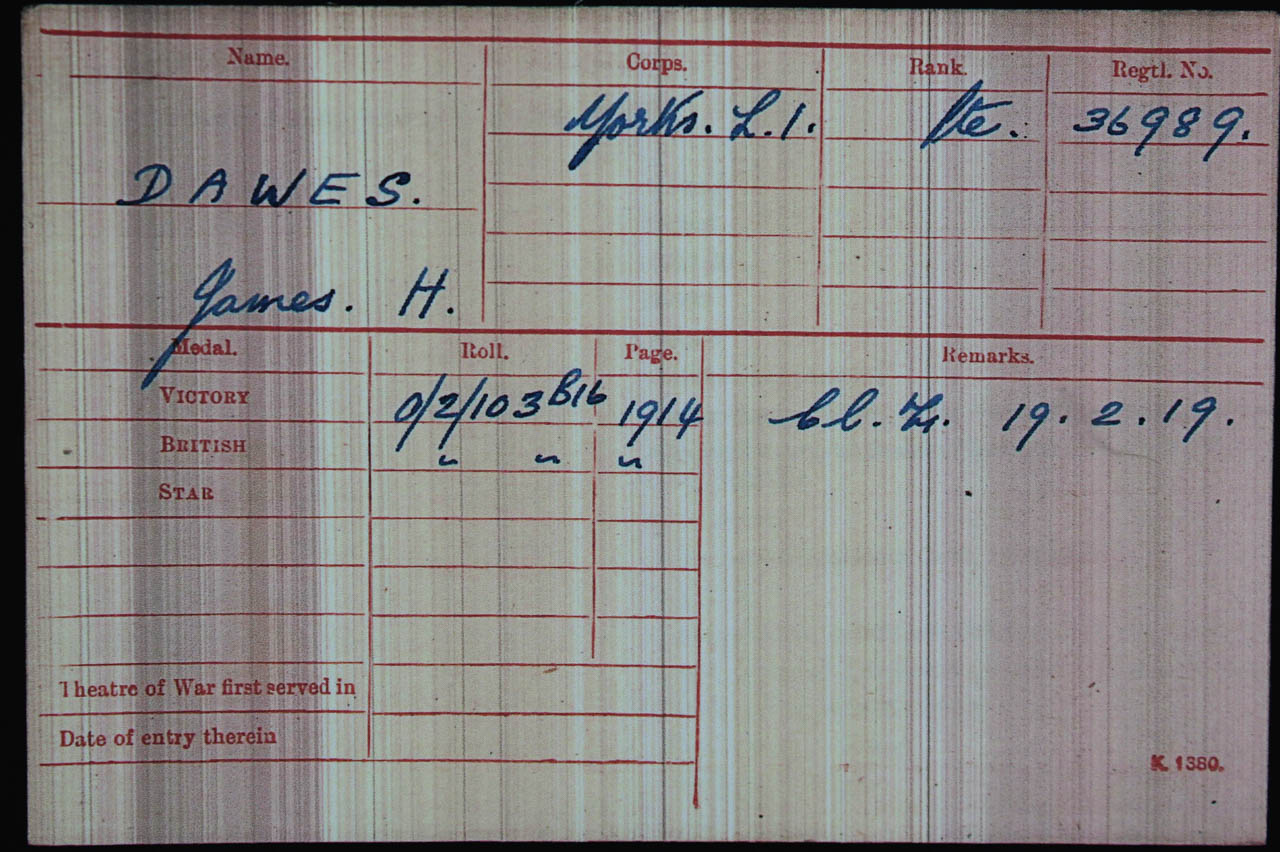 Name. Corps. Rank. Regtl. No.
Yorks. L.I. Pte. 36989.
DAWES.
James. H.
Medal. Roll. Page. Remarks.
VICTORY 0/2/103 B16 1914 Cl. Z. 19. 2. 19.
BRITISH " " "
STAR
Theatre of War first served in
Date of entry therein
K. 1380.